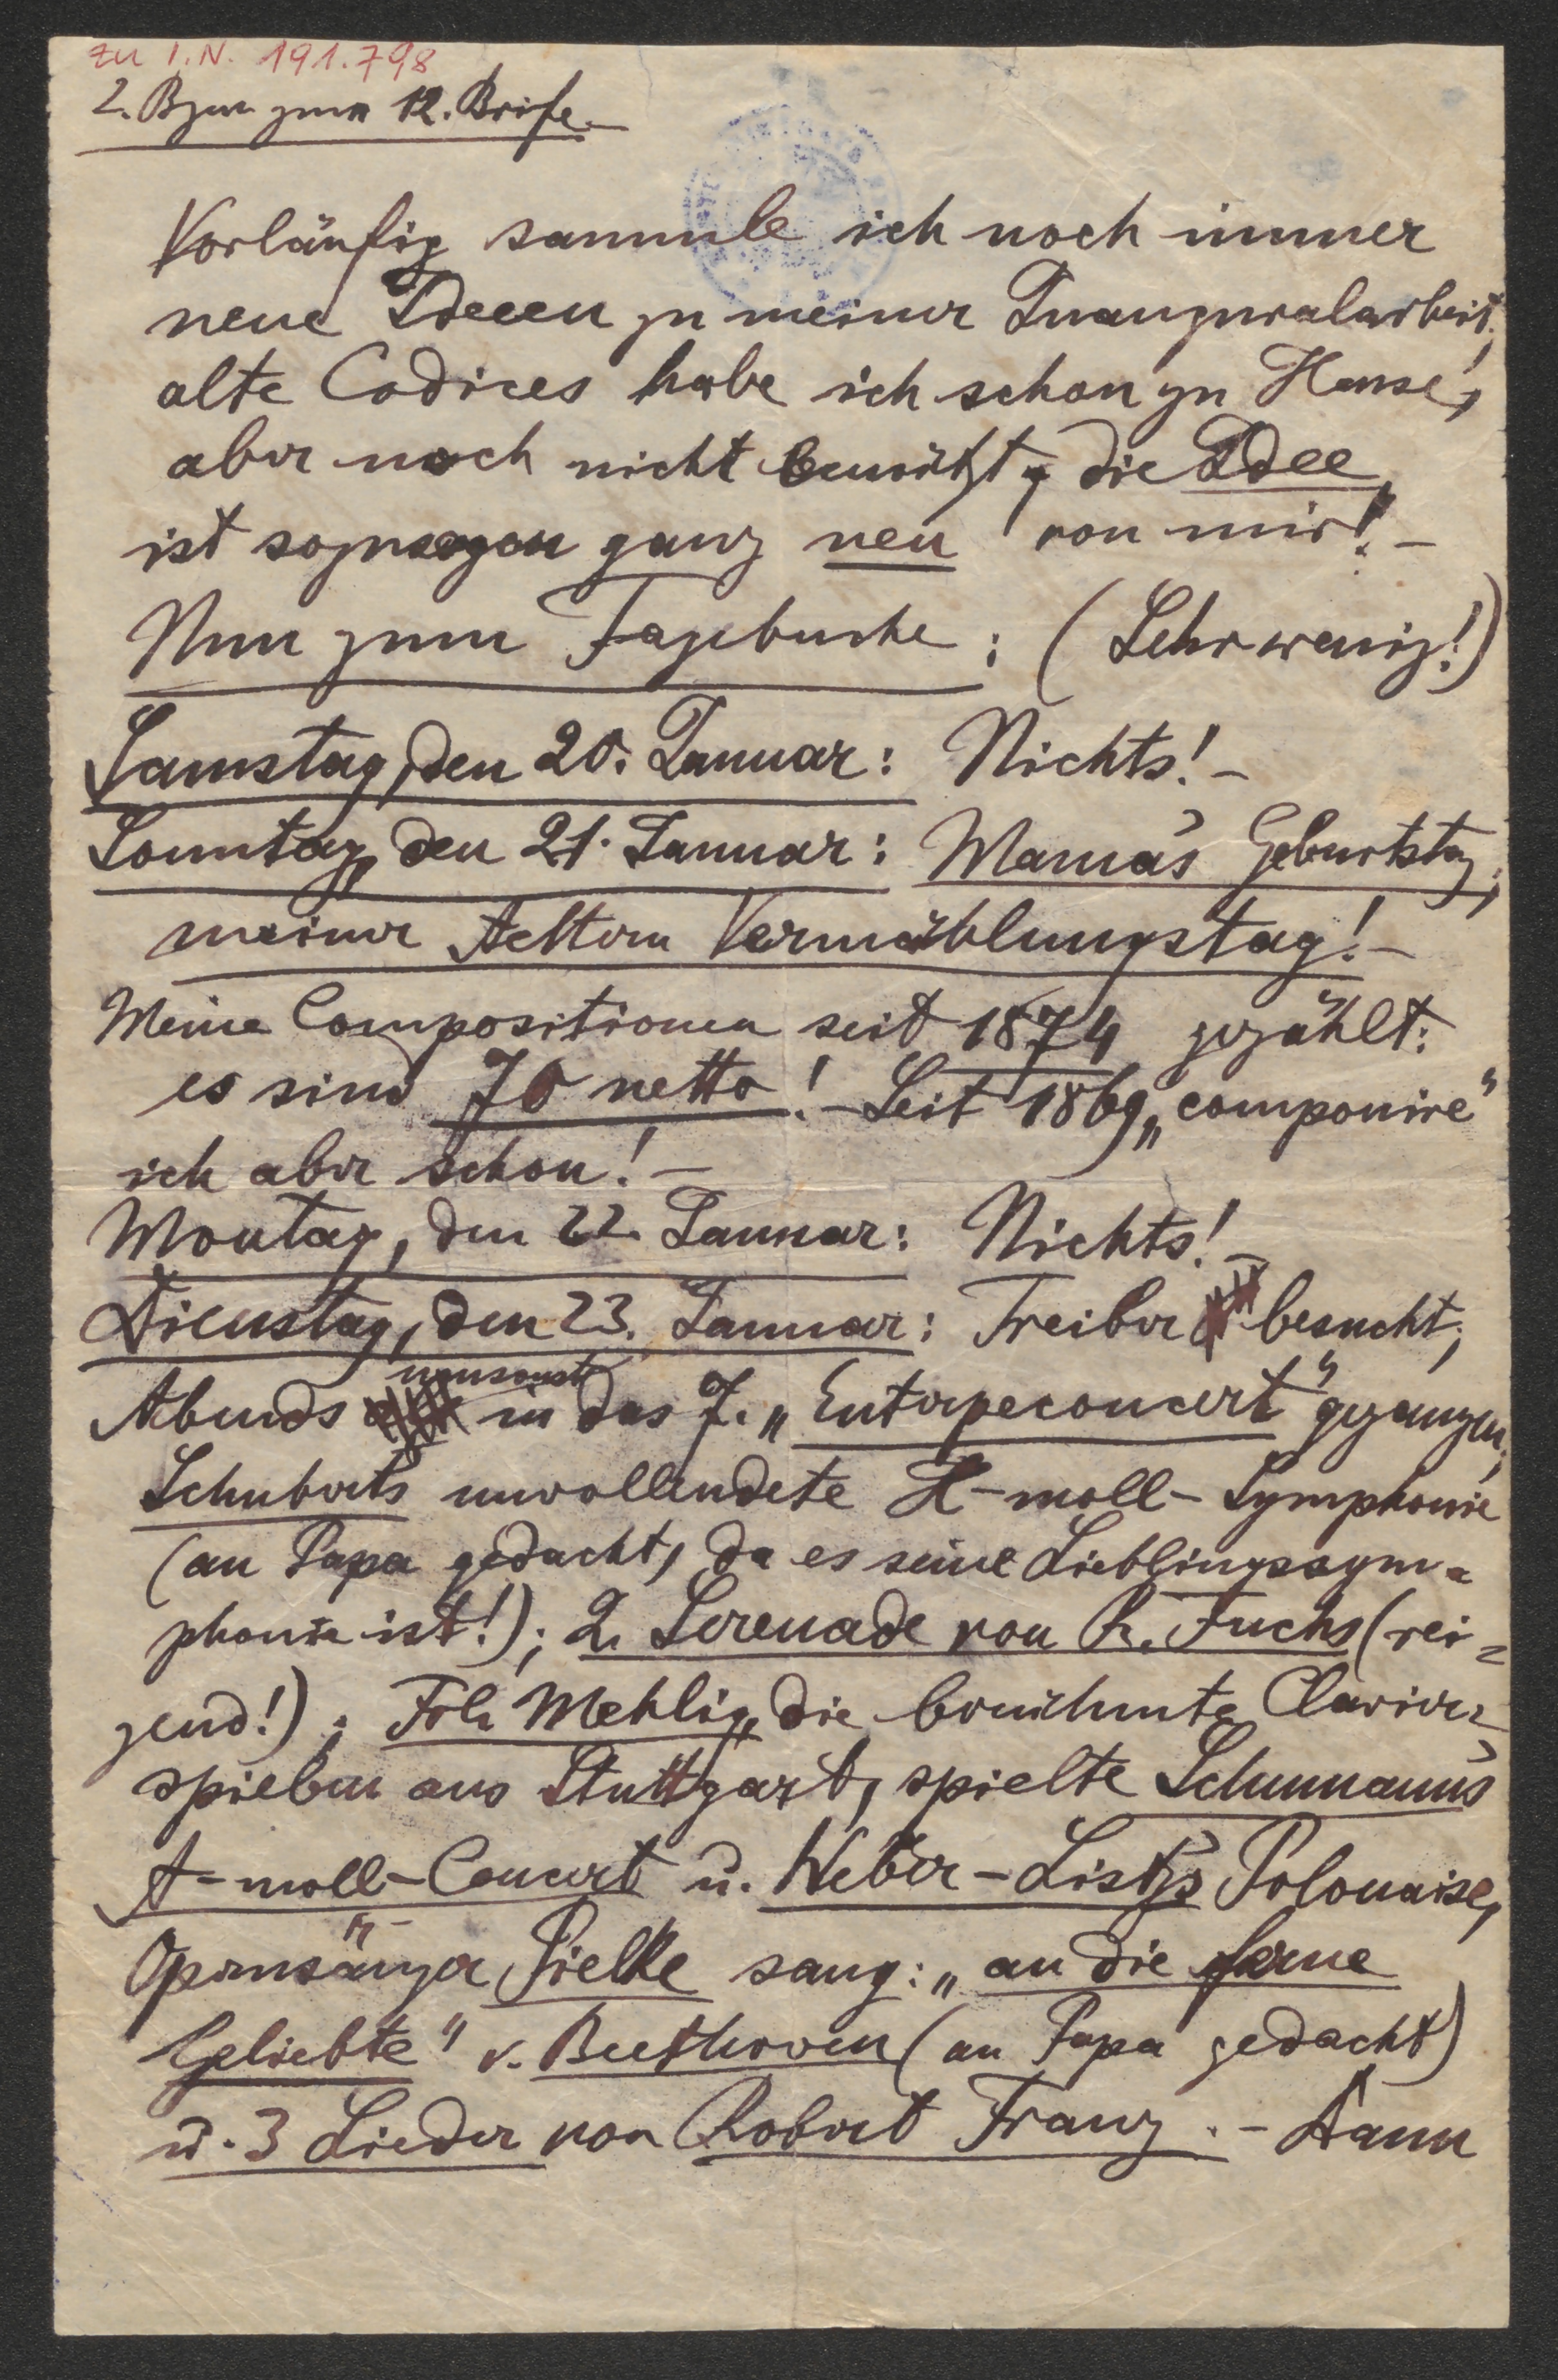 zu I.N. 191.798
2. Bgen zum 12. Briefe.
Vorläufig sammle ich noch immer
neue Ideeen zu meiner Inauguralarbeit;
alte Codices habe ich schon zu Hause,
aber noch nicht benützt, die Idee
ist sozusagen ganz neu von mir! –
Nun zum Tagebuche: (Sehr wenig!)
Samstag, den 20. Januar: Nichts! –
Sonntag, den 21. Januar: Mama's Geburtstag;
meiner Aeltern Vermählungstag! –
Meine Compositionen seit 1874 gezählt:
es sind 70 netto! – Seit 1869 „componire"
ich aber schon! –
Montag, den 22. Januar: Nichts! –
Dienstag, den 23. Januar: Treiber besucht;
umsonst
Abends in das 7. „Euterpeconcert" gegangen;
Schuberts unvollendete H-moll-Symphonie
(an Papa gedacht, da es seine Lieblingssym=
phonie ist!); 2. Serenade von R. Fuchs (rei=
zend!); Frl. Mehlig, die berühmte Clavier=
spielerin aus Stuttgart, spielte Schumann's
A-moll-Concert u. Weber-Liszt's Polonaise,
Opernsänger Pielke sang: „an die ferne
Geliebte" v. Beethoven (an Papa gedacht)
u. 3 Lieder von Robert Franz. – Dann